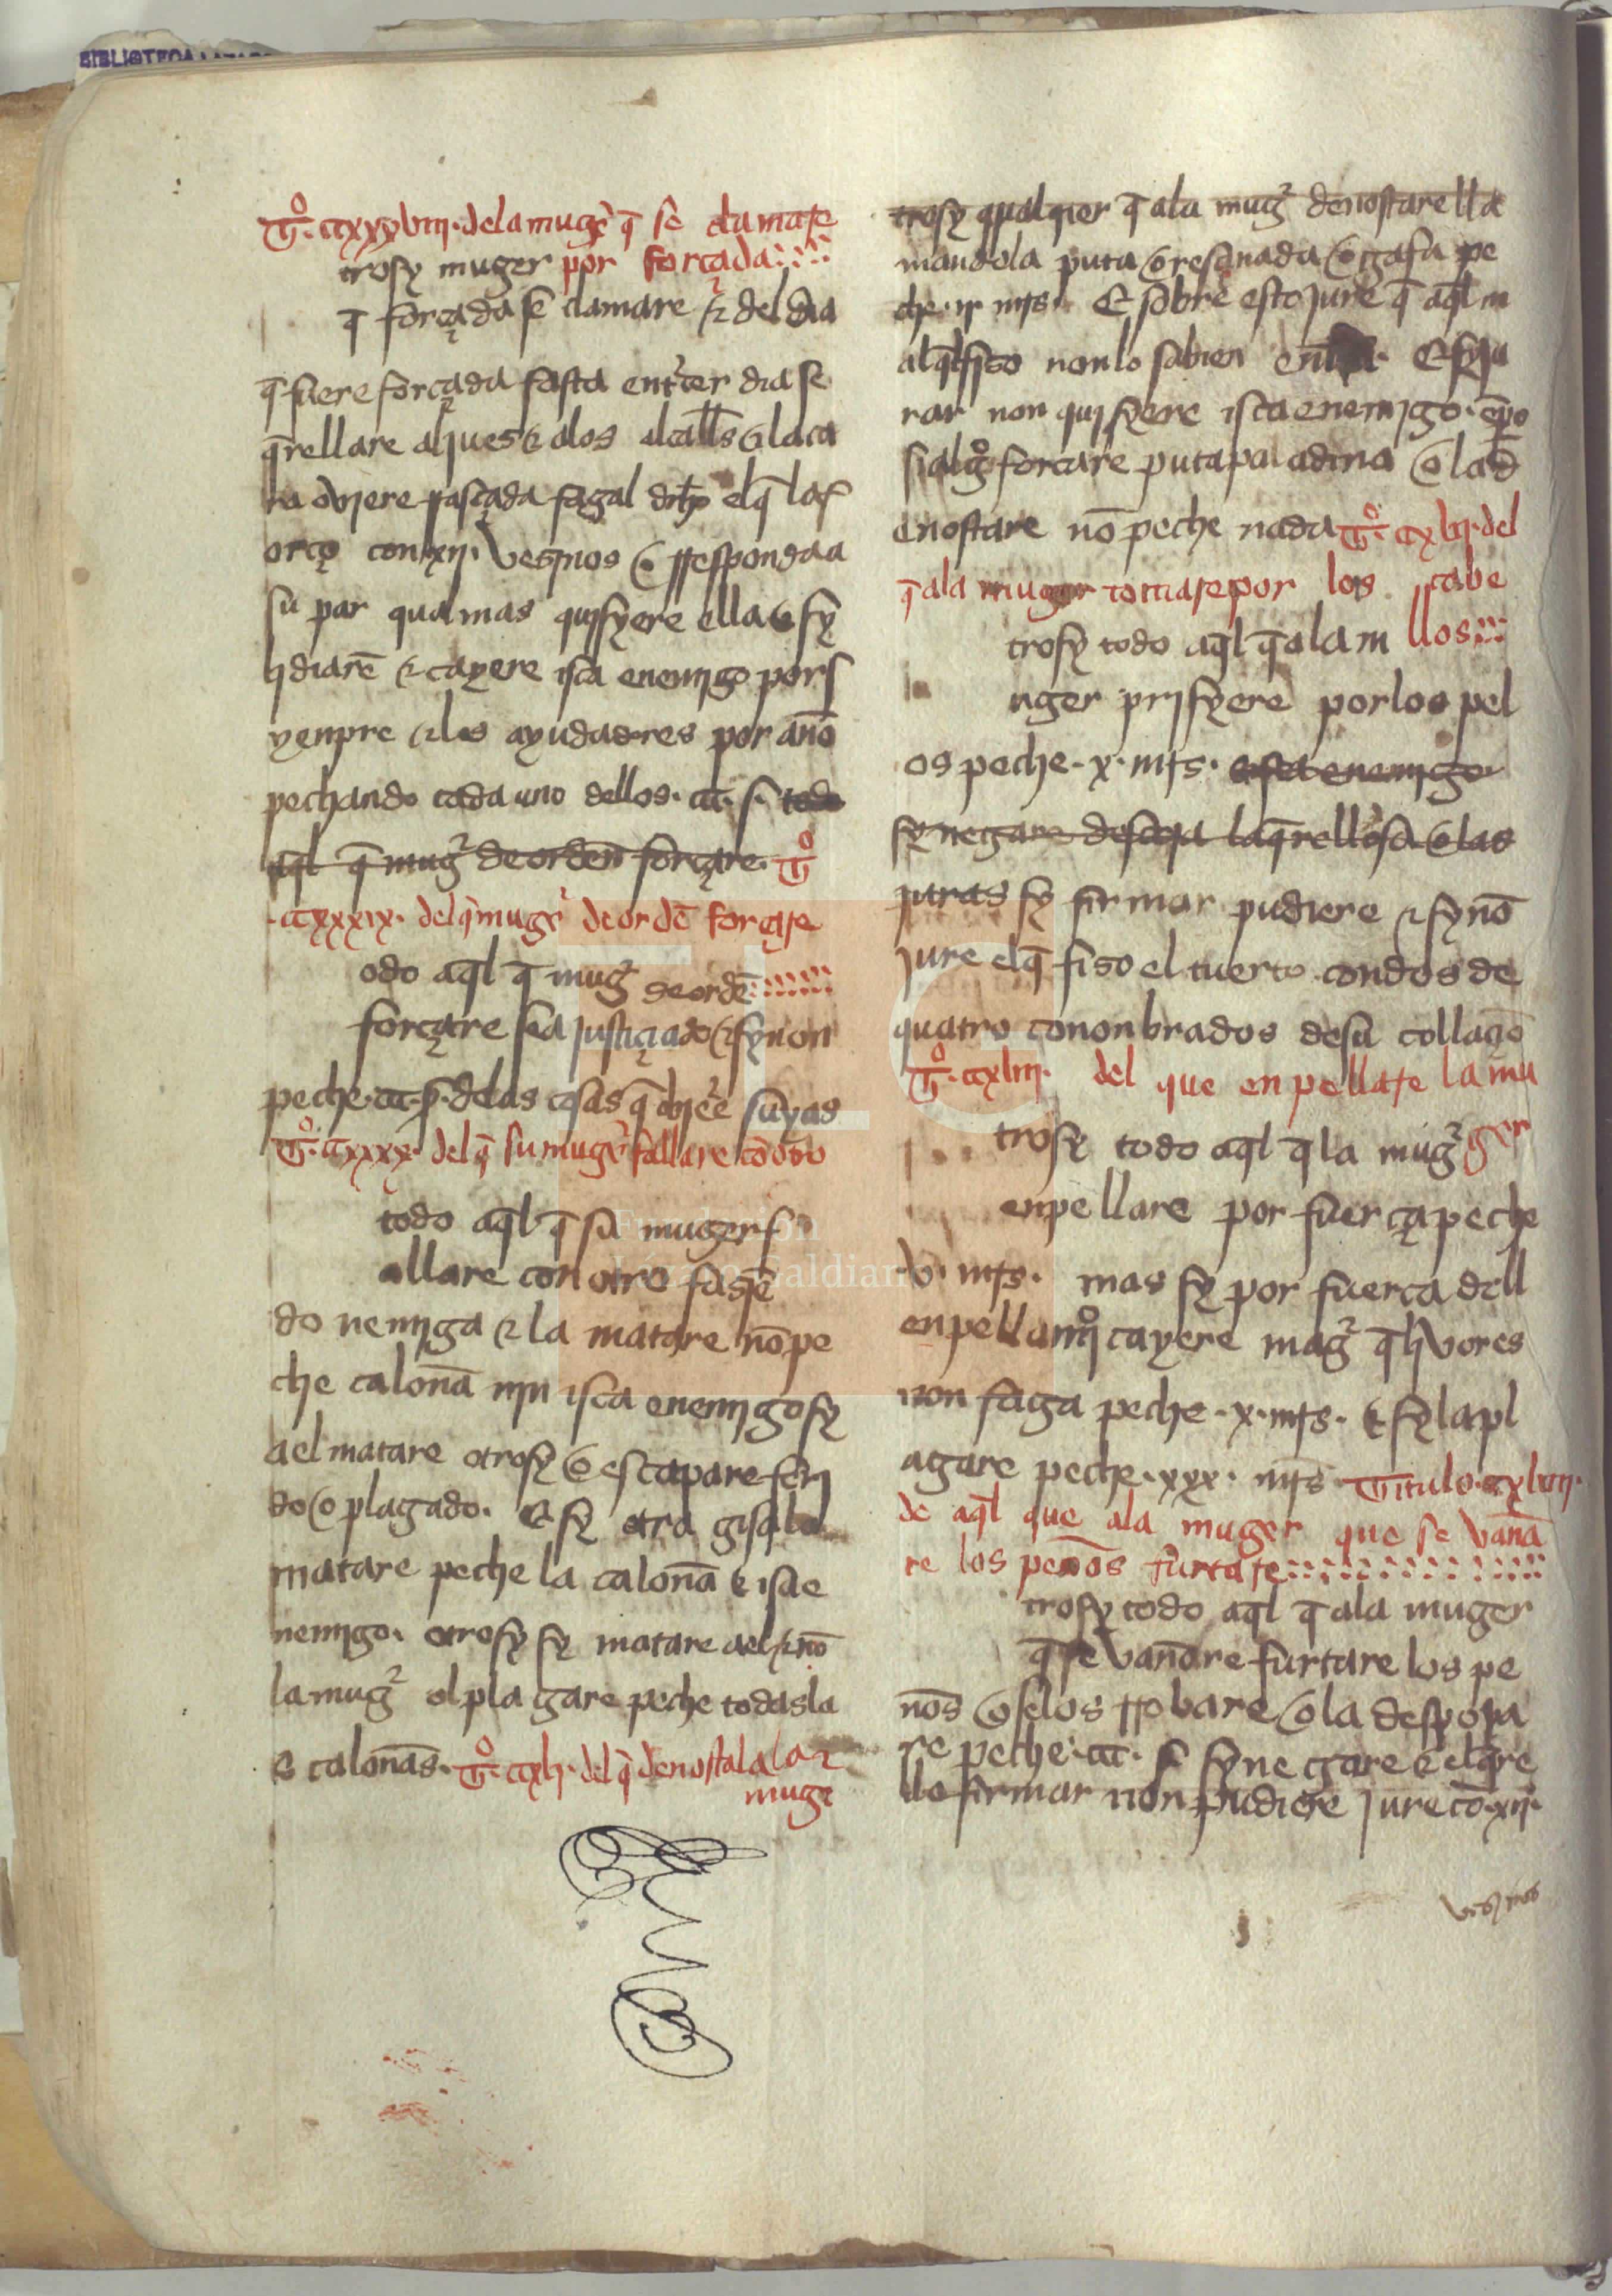 BIBLIOTECA
Tº. ccxxxviii. dela mugr̄ q̄ se clamase
trosy muger por forçada
q̄ forçada se clamare & del dia
q̄ fuere forçada fasta entrcer dia se
q̄rellare al jues & alos alcalls & la ca
ra oviere rrascada faga l drcho el q̄ la f
orço con xii. vesinos & rresponda a
su par qual mas quisyere ella & sy
lidiarē & cayere isca enemigo por s
yenpre & los ayudadores por año
pechando cada uno dellos. cc. s. todo
aql̄ q̄ mugr̄ de orden forçare. Tº
. ccxxxix. del q̄ mugr̄ de ordē forçase
odo aql̄ q̄ mugr̄ de ordē
forçare sea justiçiado & sy non
peche. cc. s. delas cosas q̄ oviere suyas
Tº. ccxxxx. del q̄ su mugr̄ fallare cō otro
todo aql̄ q̄ su muger f
allare con otro fasiē
do nemiga & la matare nō pe
che caloña nin isca enemigo sy
a el matare otrosy o escapare feri
do o plagado. E sy otra gisa lo
matare peche la caloña & isca e
nemigo. otrosy sy matare a el & nō
la mugr̄ ol plagare peche todas la
s caloñas. Tº. ccxli. del q̄ denostalala r
muge
trosy qualqier q̄ ala mugr̄ denostare lla
mandola puta o resanada o gafa pe
che. ii mrs. E sobre esto jure q̄ aql̄ m
al q̄l diso non lo sabien en E sy ju
rar non quisyere isca enemigo. ēpo
si algº forcare puta paladina o la d
enostare nō peche nada Tº. ccxlii. del
q̄ ala muger tomase por los cabe
trosy todo aql̄ q̄ ala m llos
uger prisyere por los pel
os peche. x. mrs. & sca enemigo
sy negare desaqa la q̄rellosa & las
juras sy firmar pudiere & sy nō
jure el q̄ fiso el tuerto con dos de
quatro cononbrados de su collaçō
Tº. ccxliii. del que enpellase la mu
trosy todo aql̄ q̄ la mugr̄ ger
enpellare por fuerça peche
. v. mrs. mas sy por fuerça dell
enpellamiº cayere magr̄ q̄ livores
non faga peche. x. mrs. & sy la pl
agare peche. xxx. mrs. Titulo. ccxliiii.
de aql̄ que ala muger que se vaña
re los peños furtase
trosy todo aql̄ q̄ ala muger
q̄ se vañare furtare los pe
ños o selos rrobare o la despoja
re peche. cc. s sy negare & el q̄re
llo firmar non pudiere jure cō. xii.
vesinos
Fundación
Lázaro Galdiano